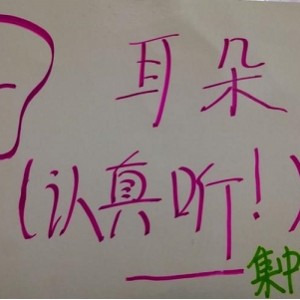 耳朵
(认真听!)
集中